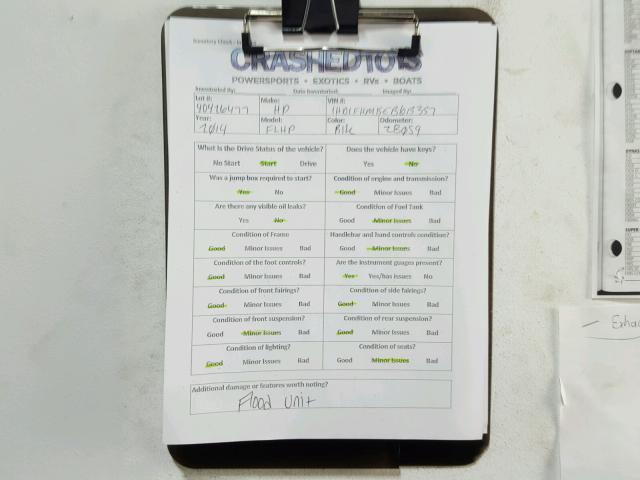 CRASHEDTOYS
POWERSPORTS • EXOTICS • RVs • BOATS
Inventoried By: Date Inventoried: Imaged By:
Lot #: Make: VIN #:
40426477 HD
Year: Model: Color: Odometer:
2014 FLHP Blk 28059
What is the Drive Status of the vehicle? Does the vehicle have keys?
No Start Start Drive Yes No
Was a jump box required to start? Condition of engine and transmission?
Yes No Good Minor Issues Bad
Are there any visible oil leaks? Condition of Fuel Tank
Yes No Good Minor Issues Bad
Condition of Frame Handlebar and hand controls condition?
Good Minor Issues Bad Good Minor Issues Bad
Condition of the foot controls? Are the instrument guages present?
Good Minor Issues Bad Yes Yes/has issues No
Condition of front fairings? Condition of side fairings?
Good Minor Issues Bad Good Minor Issues Bad
Condition of front suspension? Condition of rear suspension?
Good Minor Issues Bad Good Minor Issues Bad
Condition of lighting? Condition of seats?
Good Minor Issues Bad Good Minor Issues Bad
Additional damage or features worth noting?
Flood Unit